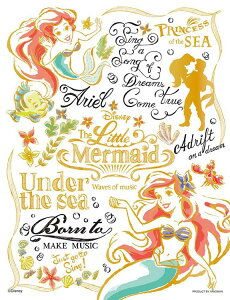 Sing
a
Song of
Dreams
Come true
PRINCESS
of the SEA
Ariel
DISNEY
The Little
Mermaid
Waves of music
Adrift
on a dream
Under
the sea
Born to
MAKE MUSIC
Just go to
Sing!
©Disney